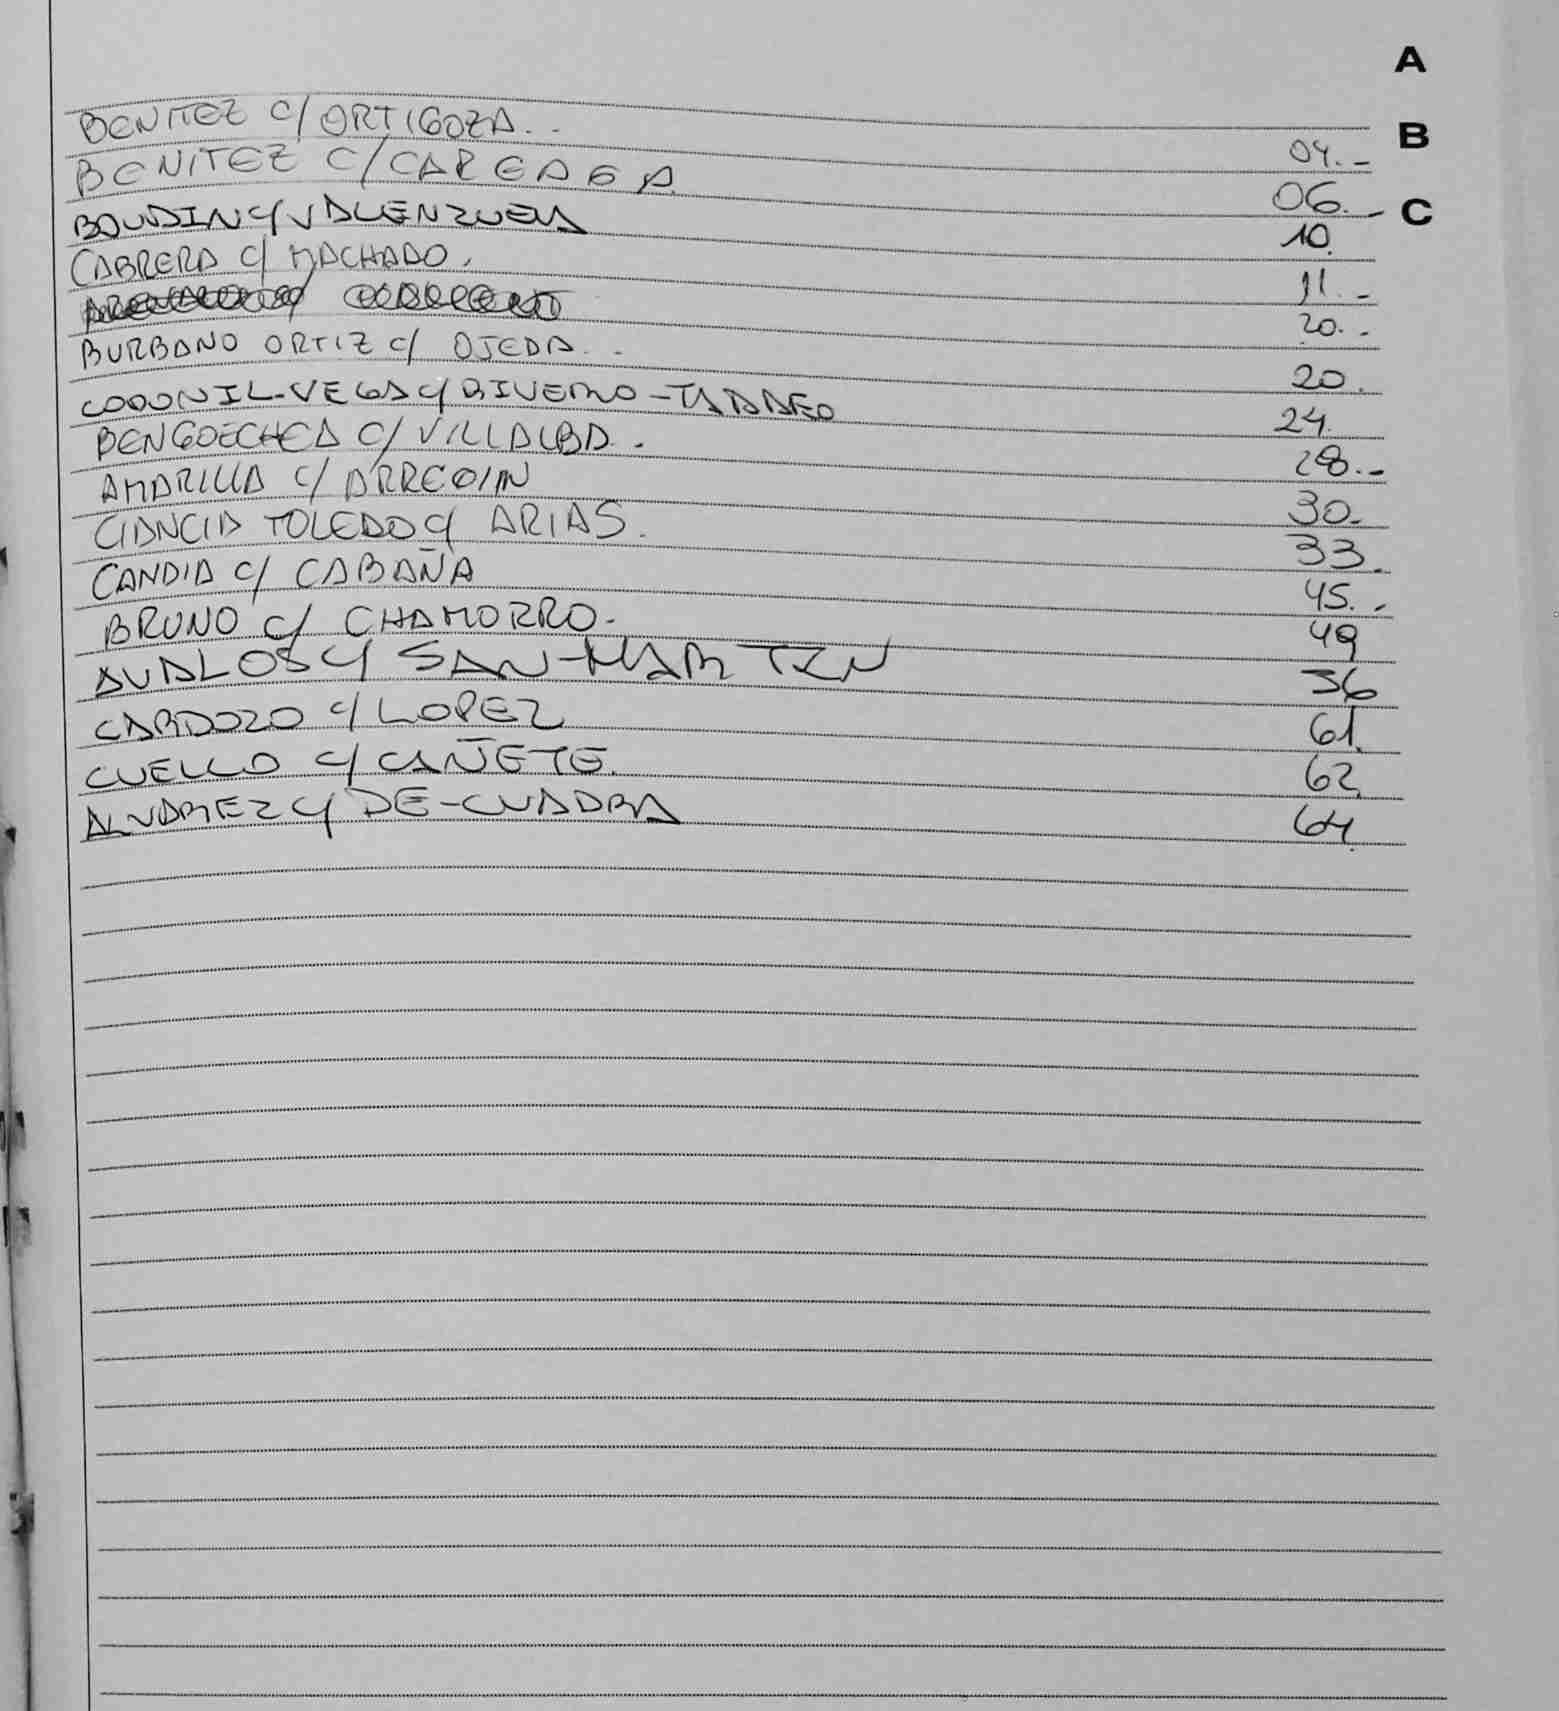 A
BENITEZ C/ ORTIGOZA.. 04.-
B
BENITEZ C/ CAREAGA 06.-
C
C/ VALENZUELA 10.
CABRERA C/ MACHADO. 11.-
20.-
BURBANO ORTIZ C/ OJEDA.. 20.
C/ RIVERO-TADDEO 24.
BENGOECHEA C/ VILLALBA.. 28.-
AMARILLA C/ ARREGIN 30.
CIANCIA TOLEDO C/ ARIAS. 33.
CANDIA C/ CABAÑA 45.-
BRUNO C/ CHAMORRO. 49
AVALOS C/ SAN-MARTIN 36
CARDOZO C/ LOPEZ 61.
CUELLO C/ CAÑETE. 62
ALVAREZ C/ DE-CUADRA 64.